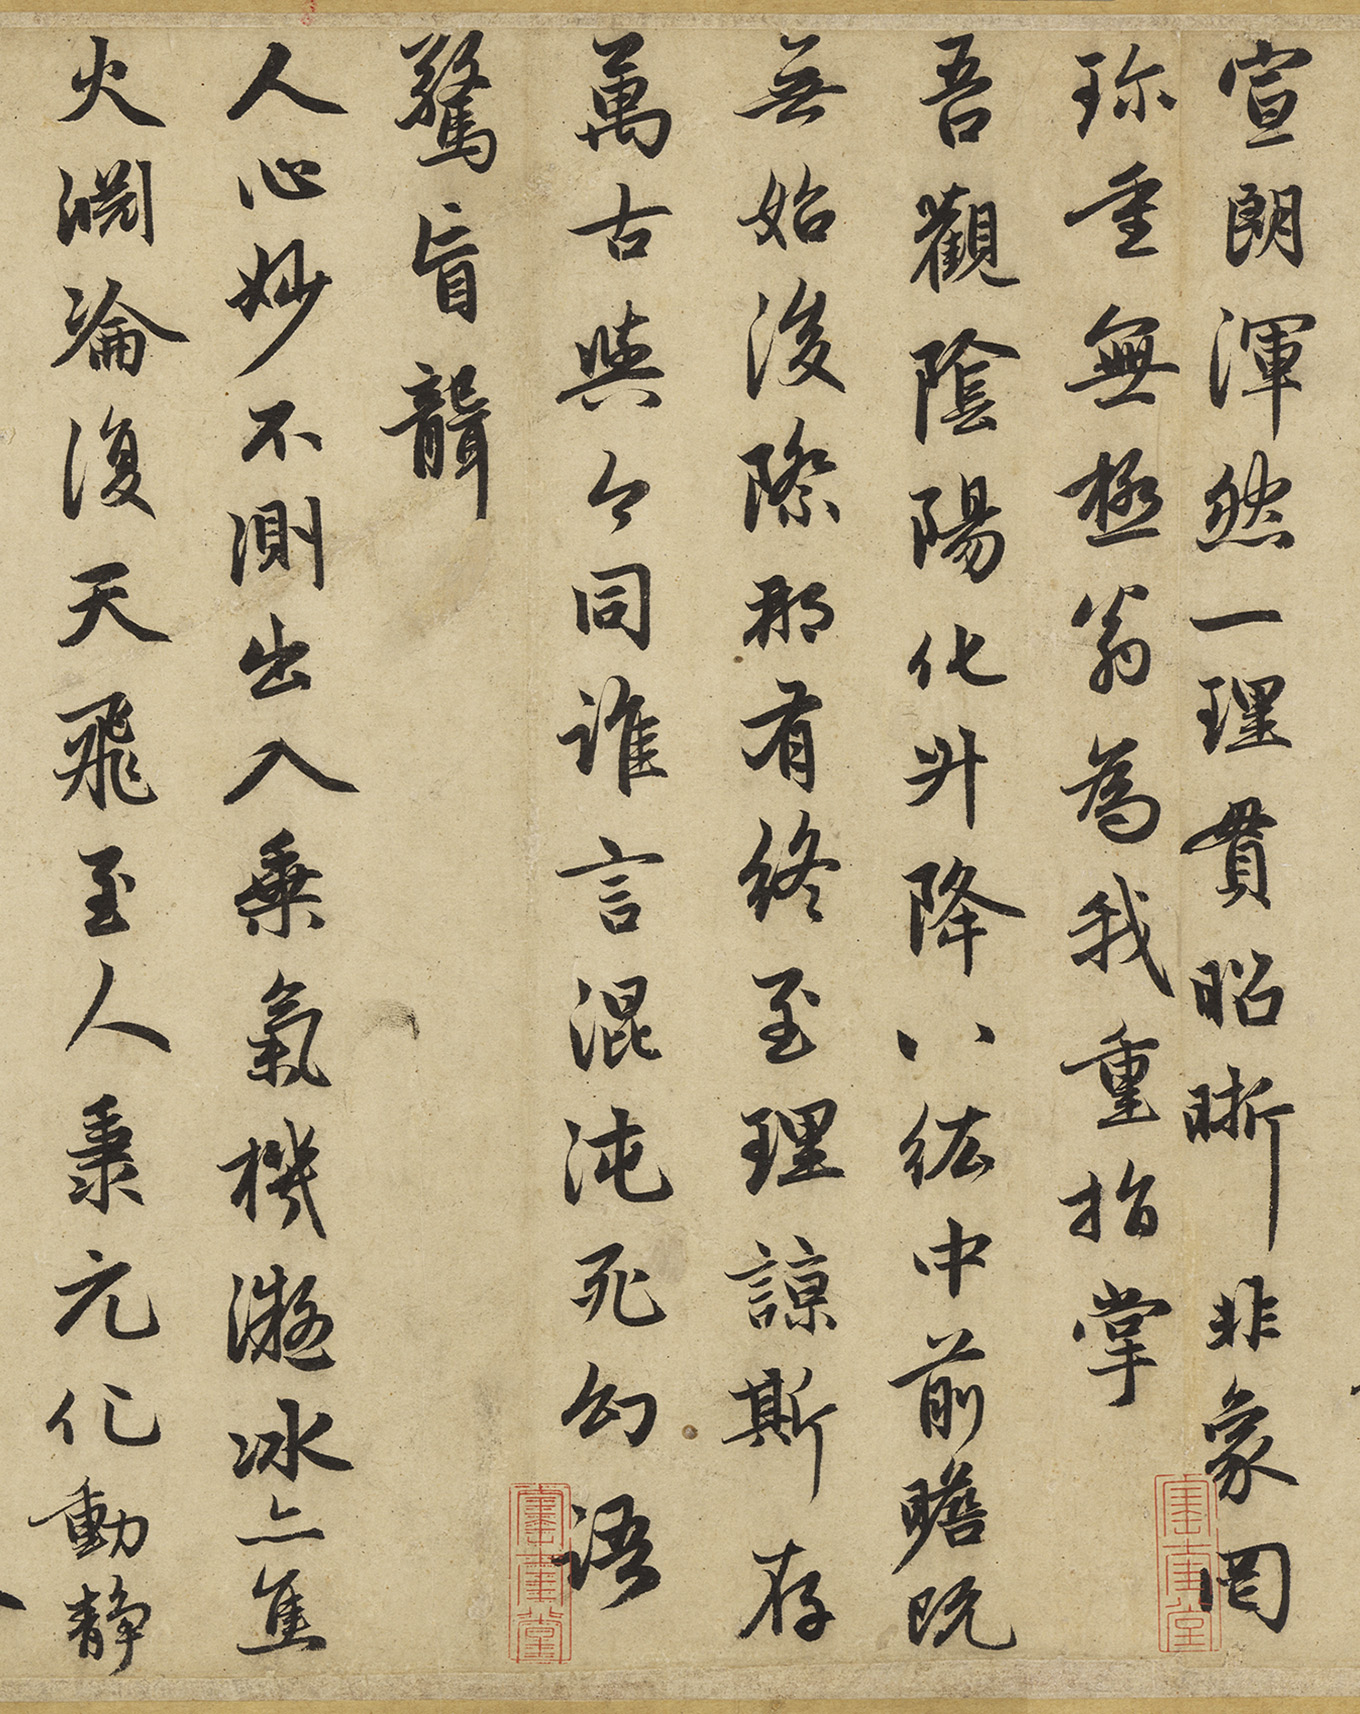 宣朗渾然一理貫昭晣非象罔
珍重無極翁為我重指掌
吾觀陰陽化升降八紘中前瞻既
無始後際那有終至理諒斯存
萬古與今同誰言混沌死幻語
驚盲聾
人心妙不測出入乘氣機凝冰亦焦
火淵淪復天飛至人秉元化動靜